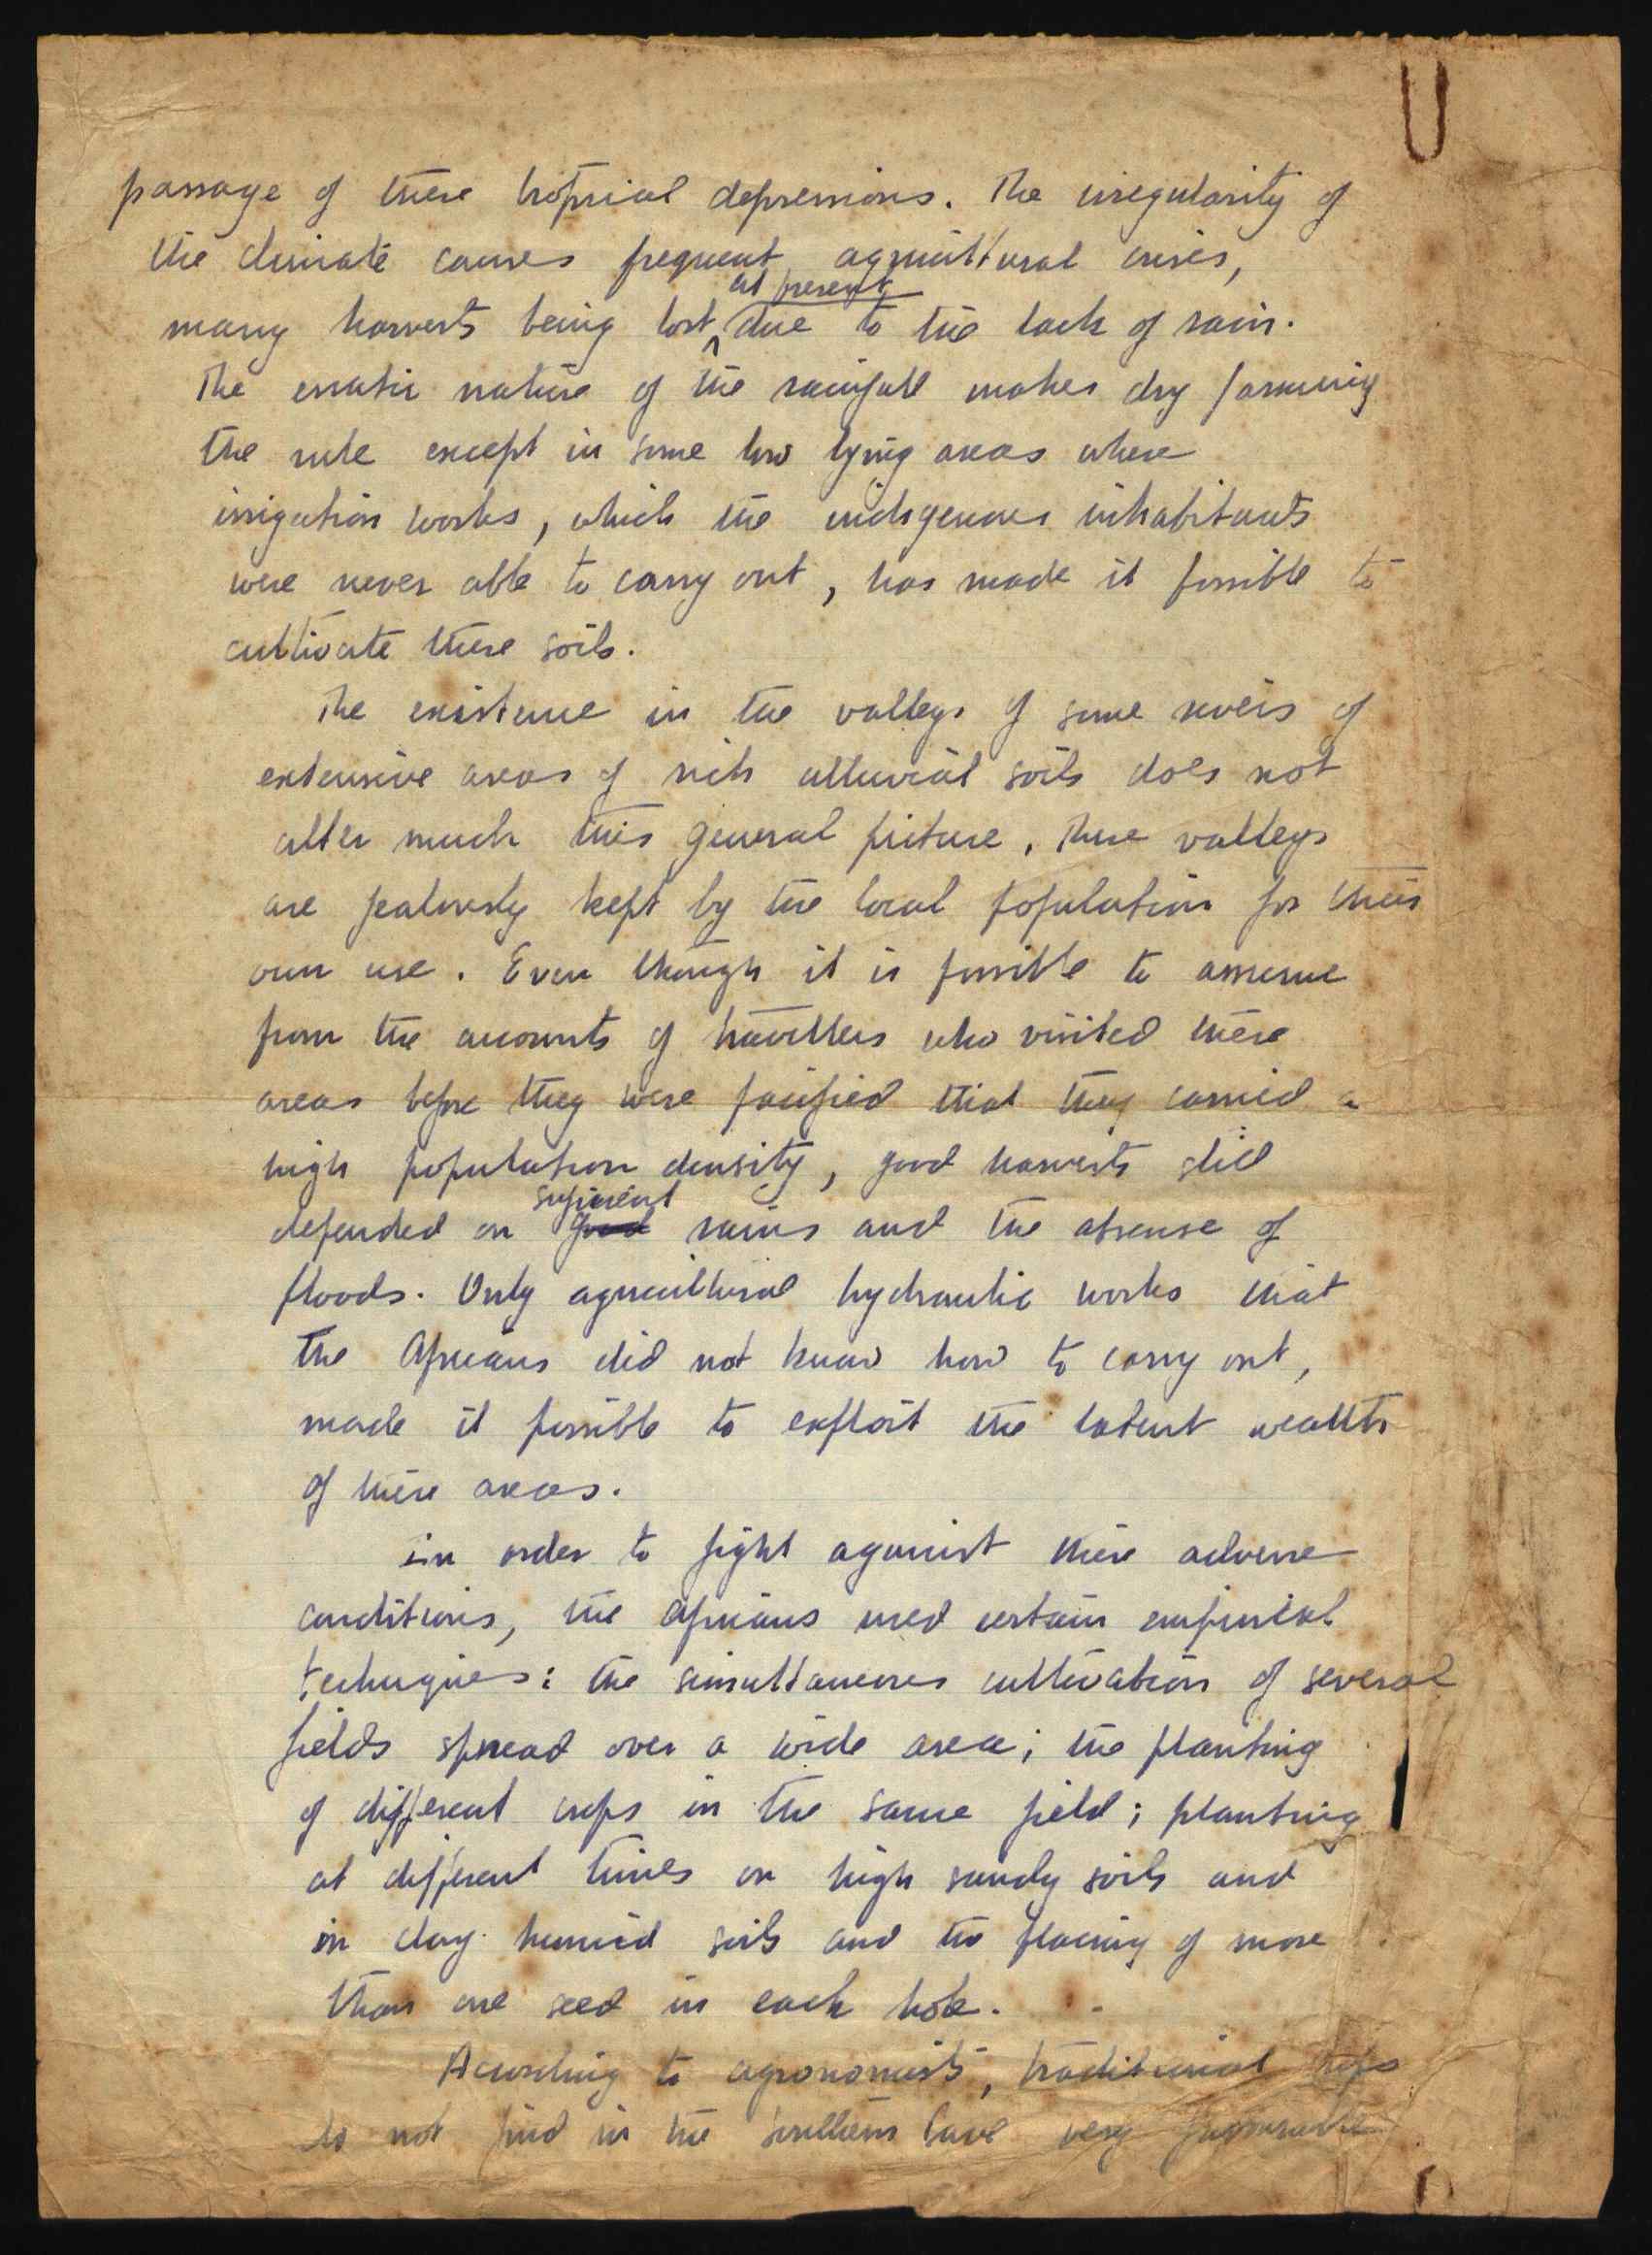 passage of these tropical depressions. The irregularity of
the climate causes frequent agricultural crises,
at present
many harvests being lost ^ due to the lack of rain.
The erratic nature of the rainfall makes dry farming
the rule except in some low lying areas where
irrigation works, which the indigenous inhabitants
were never able to carry out, has made it possible to
cultivate these soils.
The existence in the valleys of some rivers of
extensive areas of rich alluvial soils does not
alter much this general picture. These valleys
are jealously kept by the local population for their
own use. Even though it is possible to assume
from the accounts of travellers who visited these
areas before they were pacified that they carried a
high population density, good harvests still
suficient
depended on good rains and the absense of
floods. Only agricultural hydraulic works that
the Africans did not know how to carry out,
made it possible to exploit the latent wealth
of these areas.
in order to fight against these adverse
conditions, the Africans used certain empirical
techniques: the simultaneous cultivation of several
fields spread over a wide area; the planting
of different crops in the same field; planting
at different times on high sandy soils and
in clay humid soils and the placing of more
than one seed in each hole.
Acording to agronomists, traditional crops
do not find in the southern Save very favourable